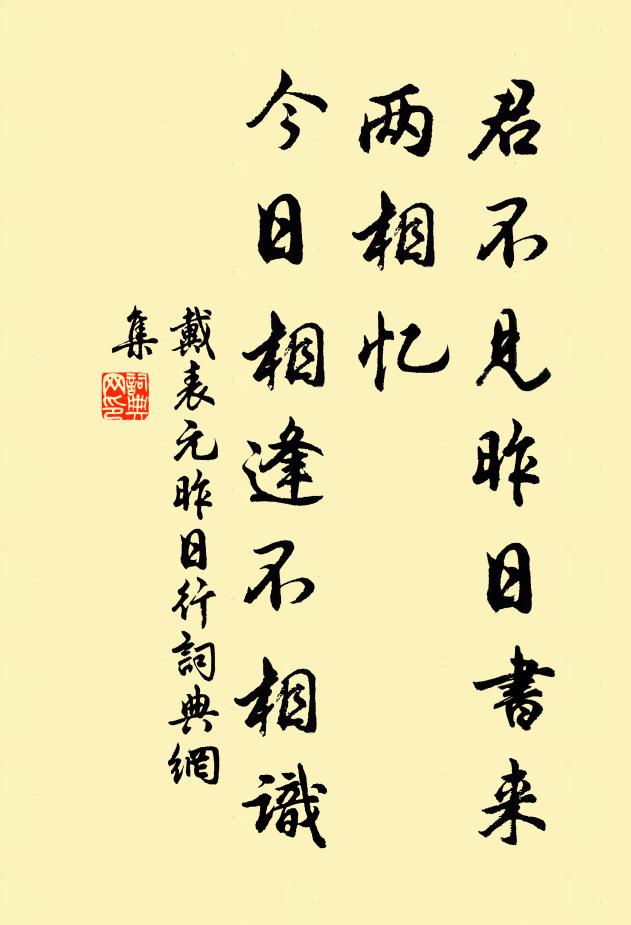 君不见昨日書来
两相忆
今日相逢不相識
戴表元昨日行詞典網
集
詞典
网印